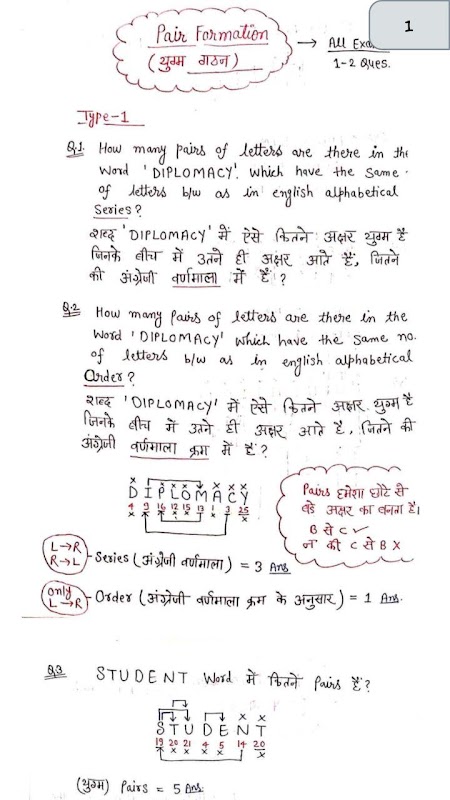 1
Pair Formation
(युग्म गठन)
→ All
1-2 Ques.
Type-1
Q.1 How many pairs of letters are there in the
Word 'DIPLOMACY'. Which have the same
of letters b/w as in english alphabetical
Series?
शब्द 'DIPLOMACY' में ऐसे कितने अक्षर युग्म हैं
जिनके बीच में उतने ही अक्षर आते हैं, जितने
की अंग्रेजी वर्णमाला में हैं?
Q.2 How many pairs of letters are there in the
Word 'DIPLOMACY' which have the same no.
of letters b/w as in english alphabetical
Order?
शब्द 'DIPLOMACY' में ऐसे कितने अक्षर युग्म हैं
जिनके बीच में उतने ही अक्षर आते हैं, जितने की
अंग्रेजी वर्णमाला क्रम में हैं?
x x x x
D I P L O M A C Y
4 9 16 12 15 13 1 3 25
x x x x x x
Pairs हमेशा छोटे से
बड़े अक्षर का बनता है।
B से C ✓
न की C से B X
L→R
R→L
- Series (अंग्रेजी वर्णमाला) = 3 Ans
only
L→R
- Order (अंग्रेजी वर्णमाला क्रम के अनुसार) = 1 Ans.
Q.3 STUDENT Word में कितने Pairs हैं?
x x
S T U D E N T
19 20 21 4 5 14 20
x x x x x
(युग्म) Pairs = 5 Ans.